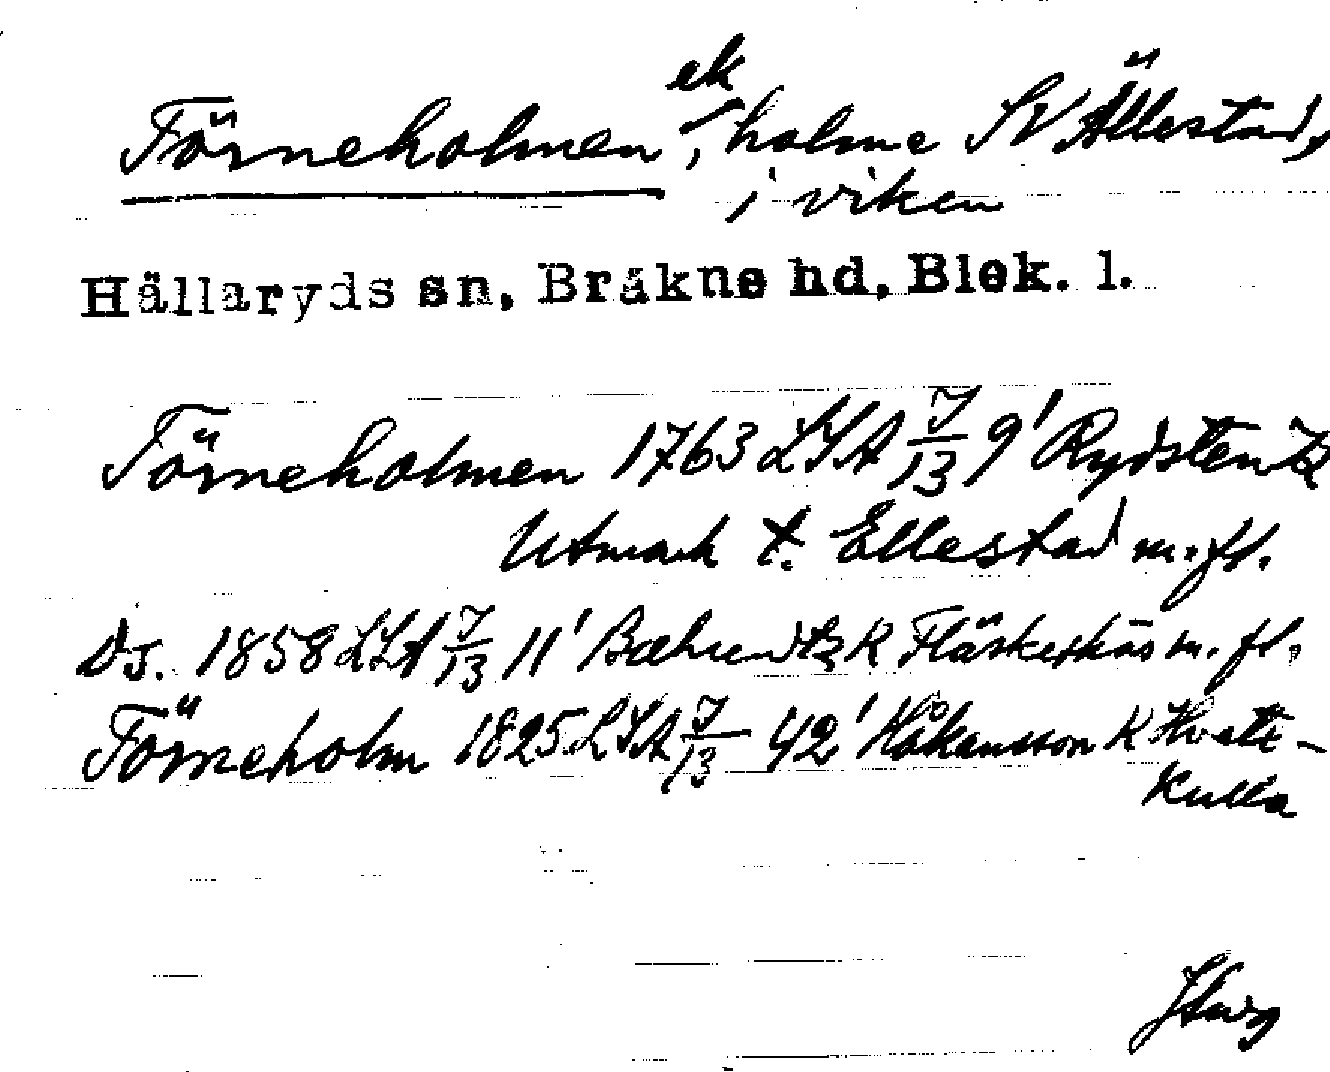 Törneholmen, ek holme SV Ällestad,
i viken
Hällaryds sn, Bräkne hd, Blek. l.
Törneholmen 1763 LSA J/13 9' Rydstein K
Utmark t. Ellestad m.fl.
Ds. 1858 LSA J/13 11' Baehrendtz K Fläskeskäs m. fl.
Törneholm 1825 LSA J/13 42' Håkansson K Hvett-
kulla